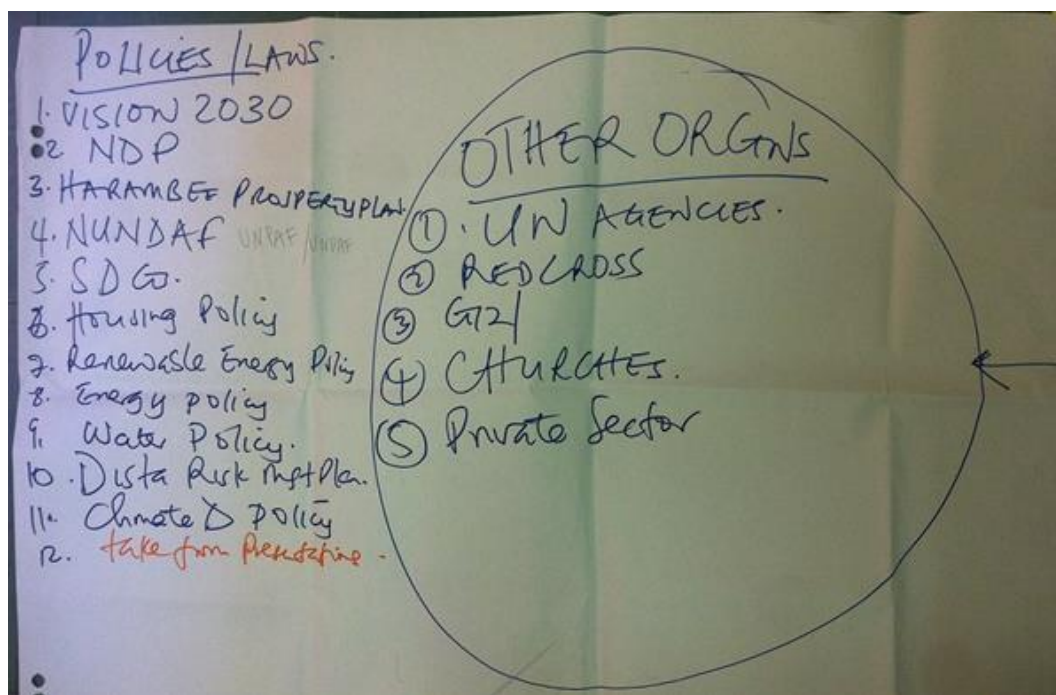 POLICIES / LAWS.
1. VISION 2030
2 NDP
3. HARAMBEE PROSPERITY PLAN.
4. NUNDAF UNPAF / UNDAF
5. SDG.
6. Housing Policy
7. Renewable Energy Policy
8. Energy policy
9. Water Policy.
10. Dista Risk mgt Plan.
11. Climate Δ policy
12. take from Presentations.
OTHER ORGNS
① UN AGENCIES.
② REDCROSS
③ 
④ CHURCHES.
⑤ Private Sector